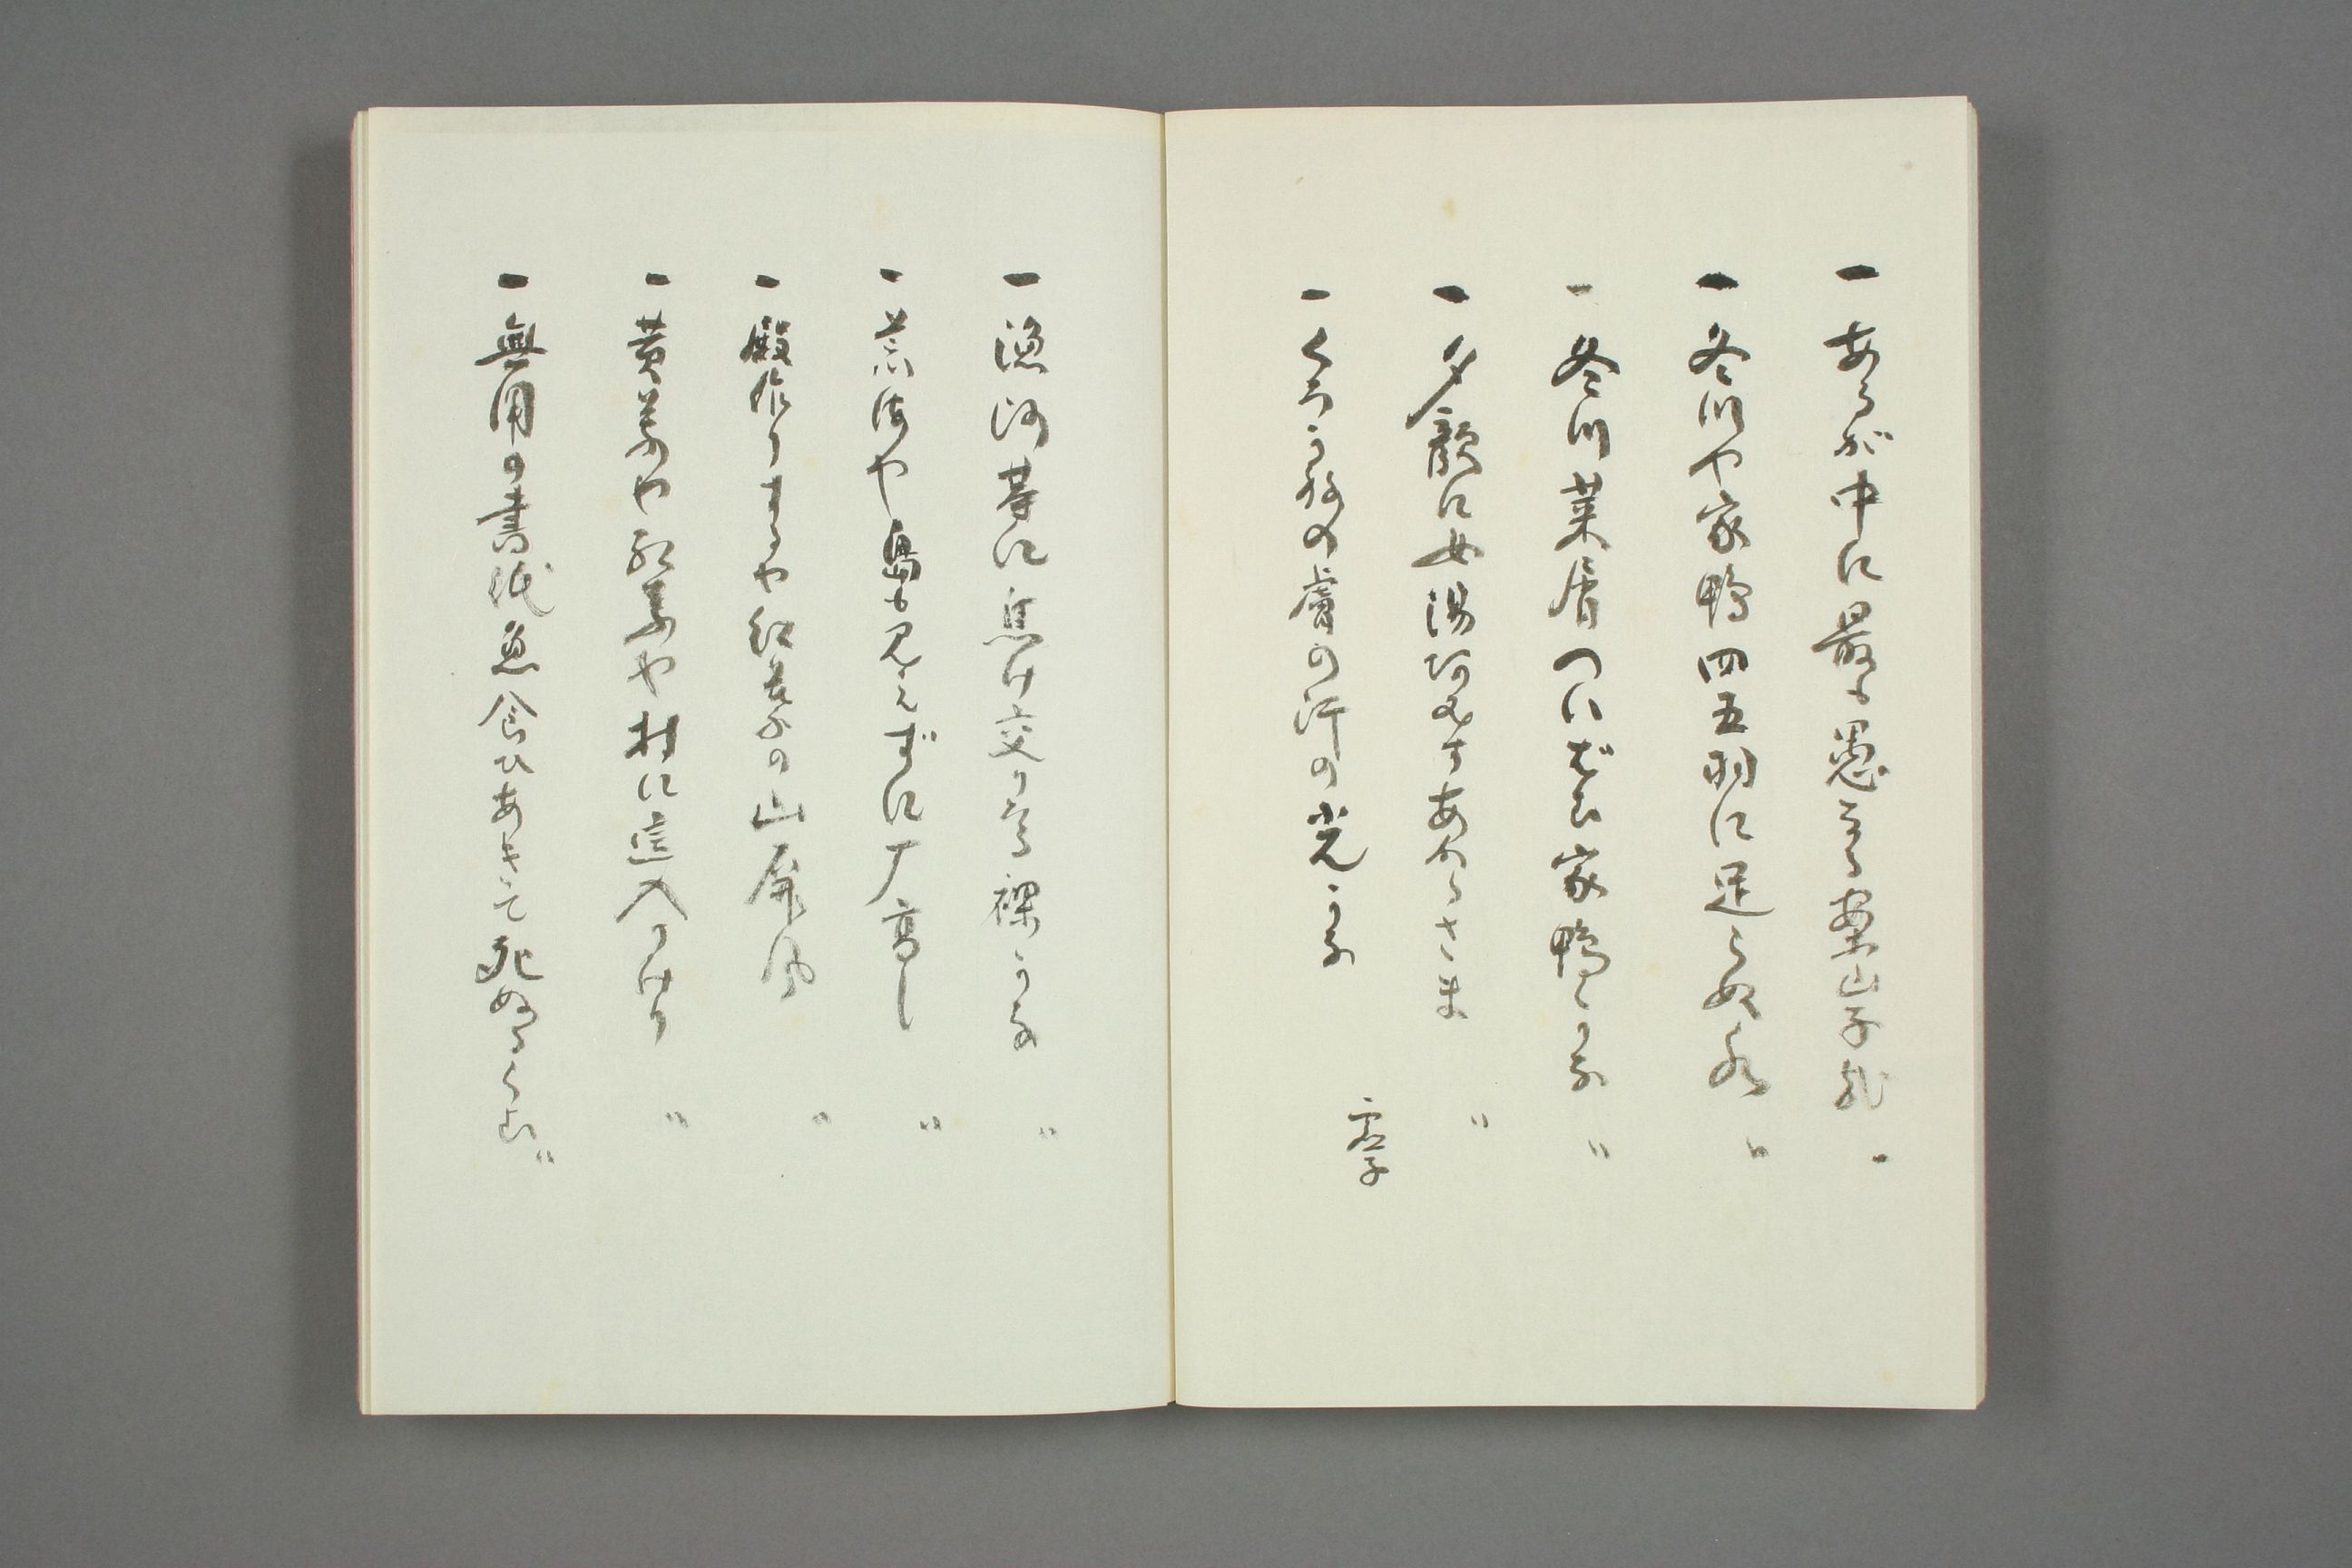 一 あるが中に最も愚なる案山子哉 〃
一 冬川や家鴨四五羽に足らぬ水 〃
一 冬川菜屑ついばむ家鴨かな 〃
一 夕顔に女湯あみすあからさま 〃
一 くろかねの膚の汗の光かな 虚子
一 漁河岸に焦け交りたる裸かな 〃
一 荒海や島も見えずに 高し 〃
一 殿作りするや紅葉の山屏風 〃
一 黄葉や紅葉や村に這入りけり 〃
一 無用の書紙魚食ひあきて死ぬるらむ 〃